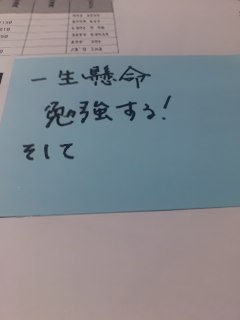 一生懸命
勉強する!
そして